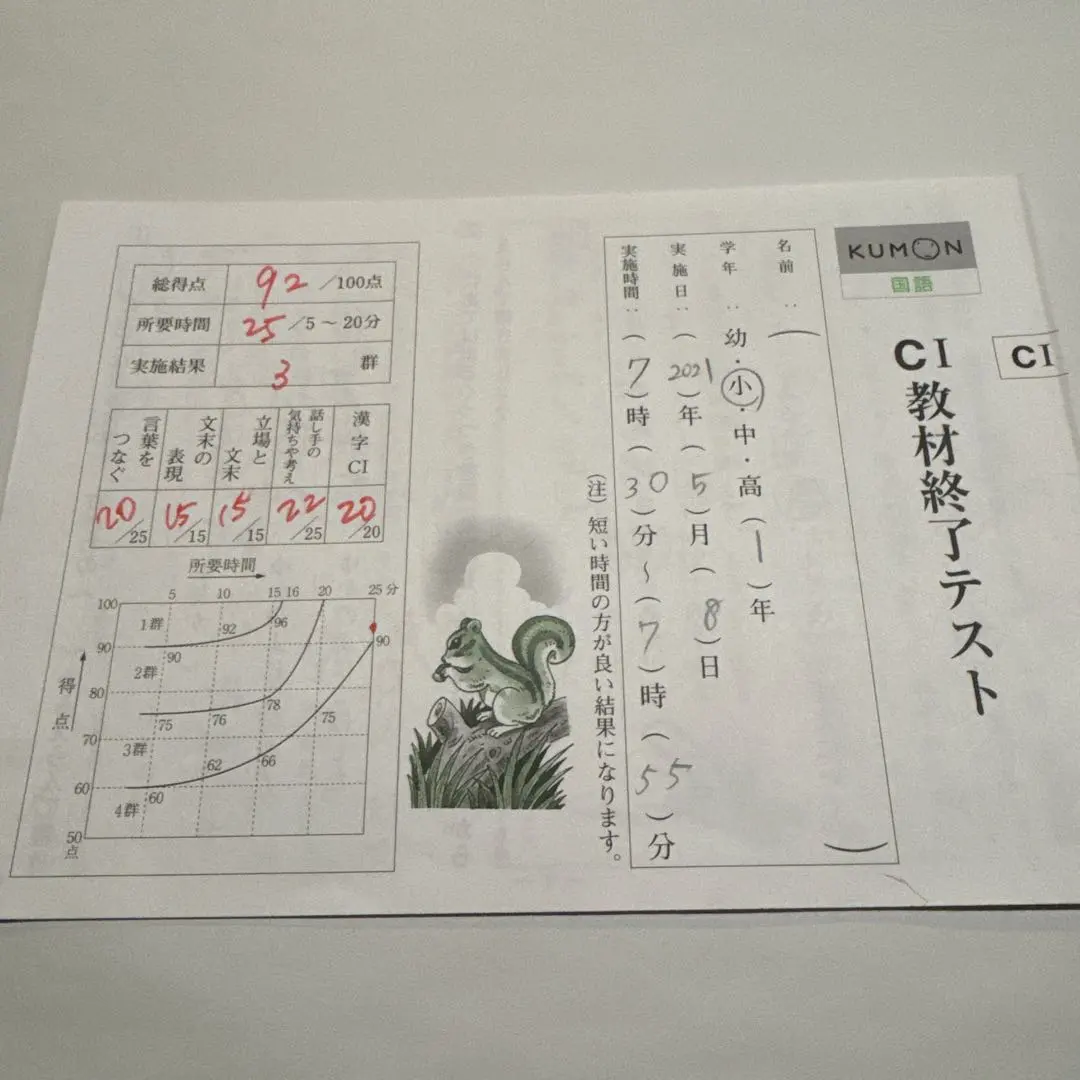 KUMON
国語
CI
CI教材終了テスト
名前：（ ）
学年：幼・小・中・高（1）年
実施日：（2021）年（5）月（8）日
実施時間：（7）時（30）分～（7）時（55）分
（注）短い時間の方が良い結果になります。
総得点 92 /100点
所要時間 25 /5～20分
実施結果 3 群
漢字CI 20 /20
話し手の気持ちや考え 22 /25
立場と文末 15 /15
文末の表現 15 /15
言葉をつなぐ 20 /25
所要時間
5 10 15 16 20 25分
得点
100
90
80
70
60
50点
1群 92 96 90
2群 90
75 76 78 75
3群 62 66
60
4群